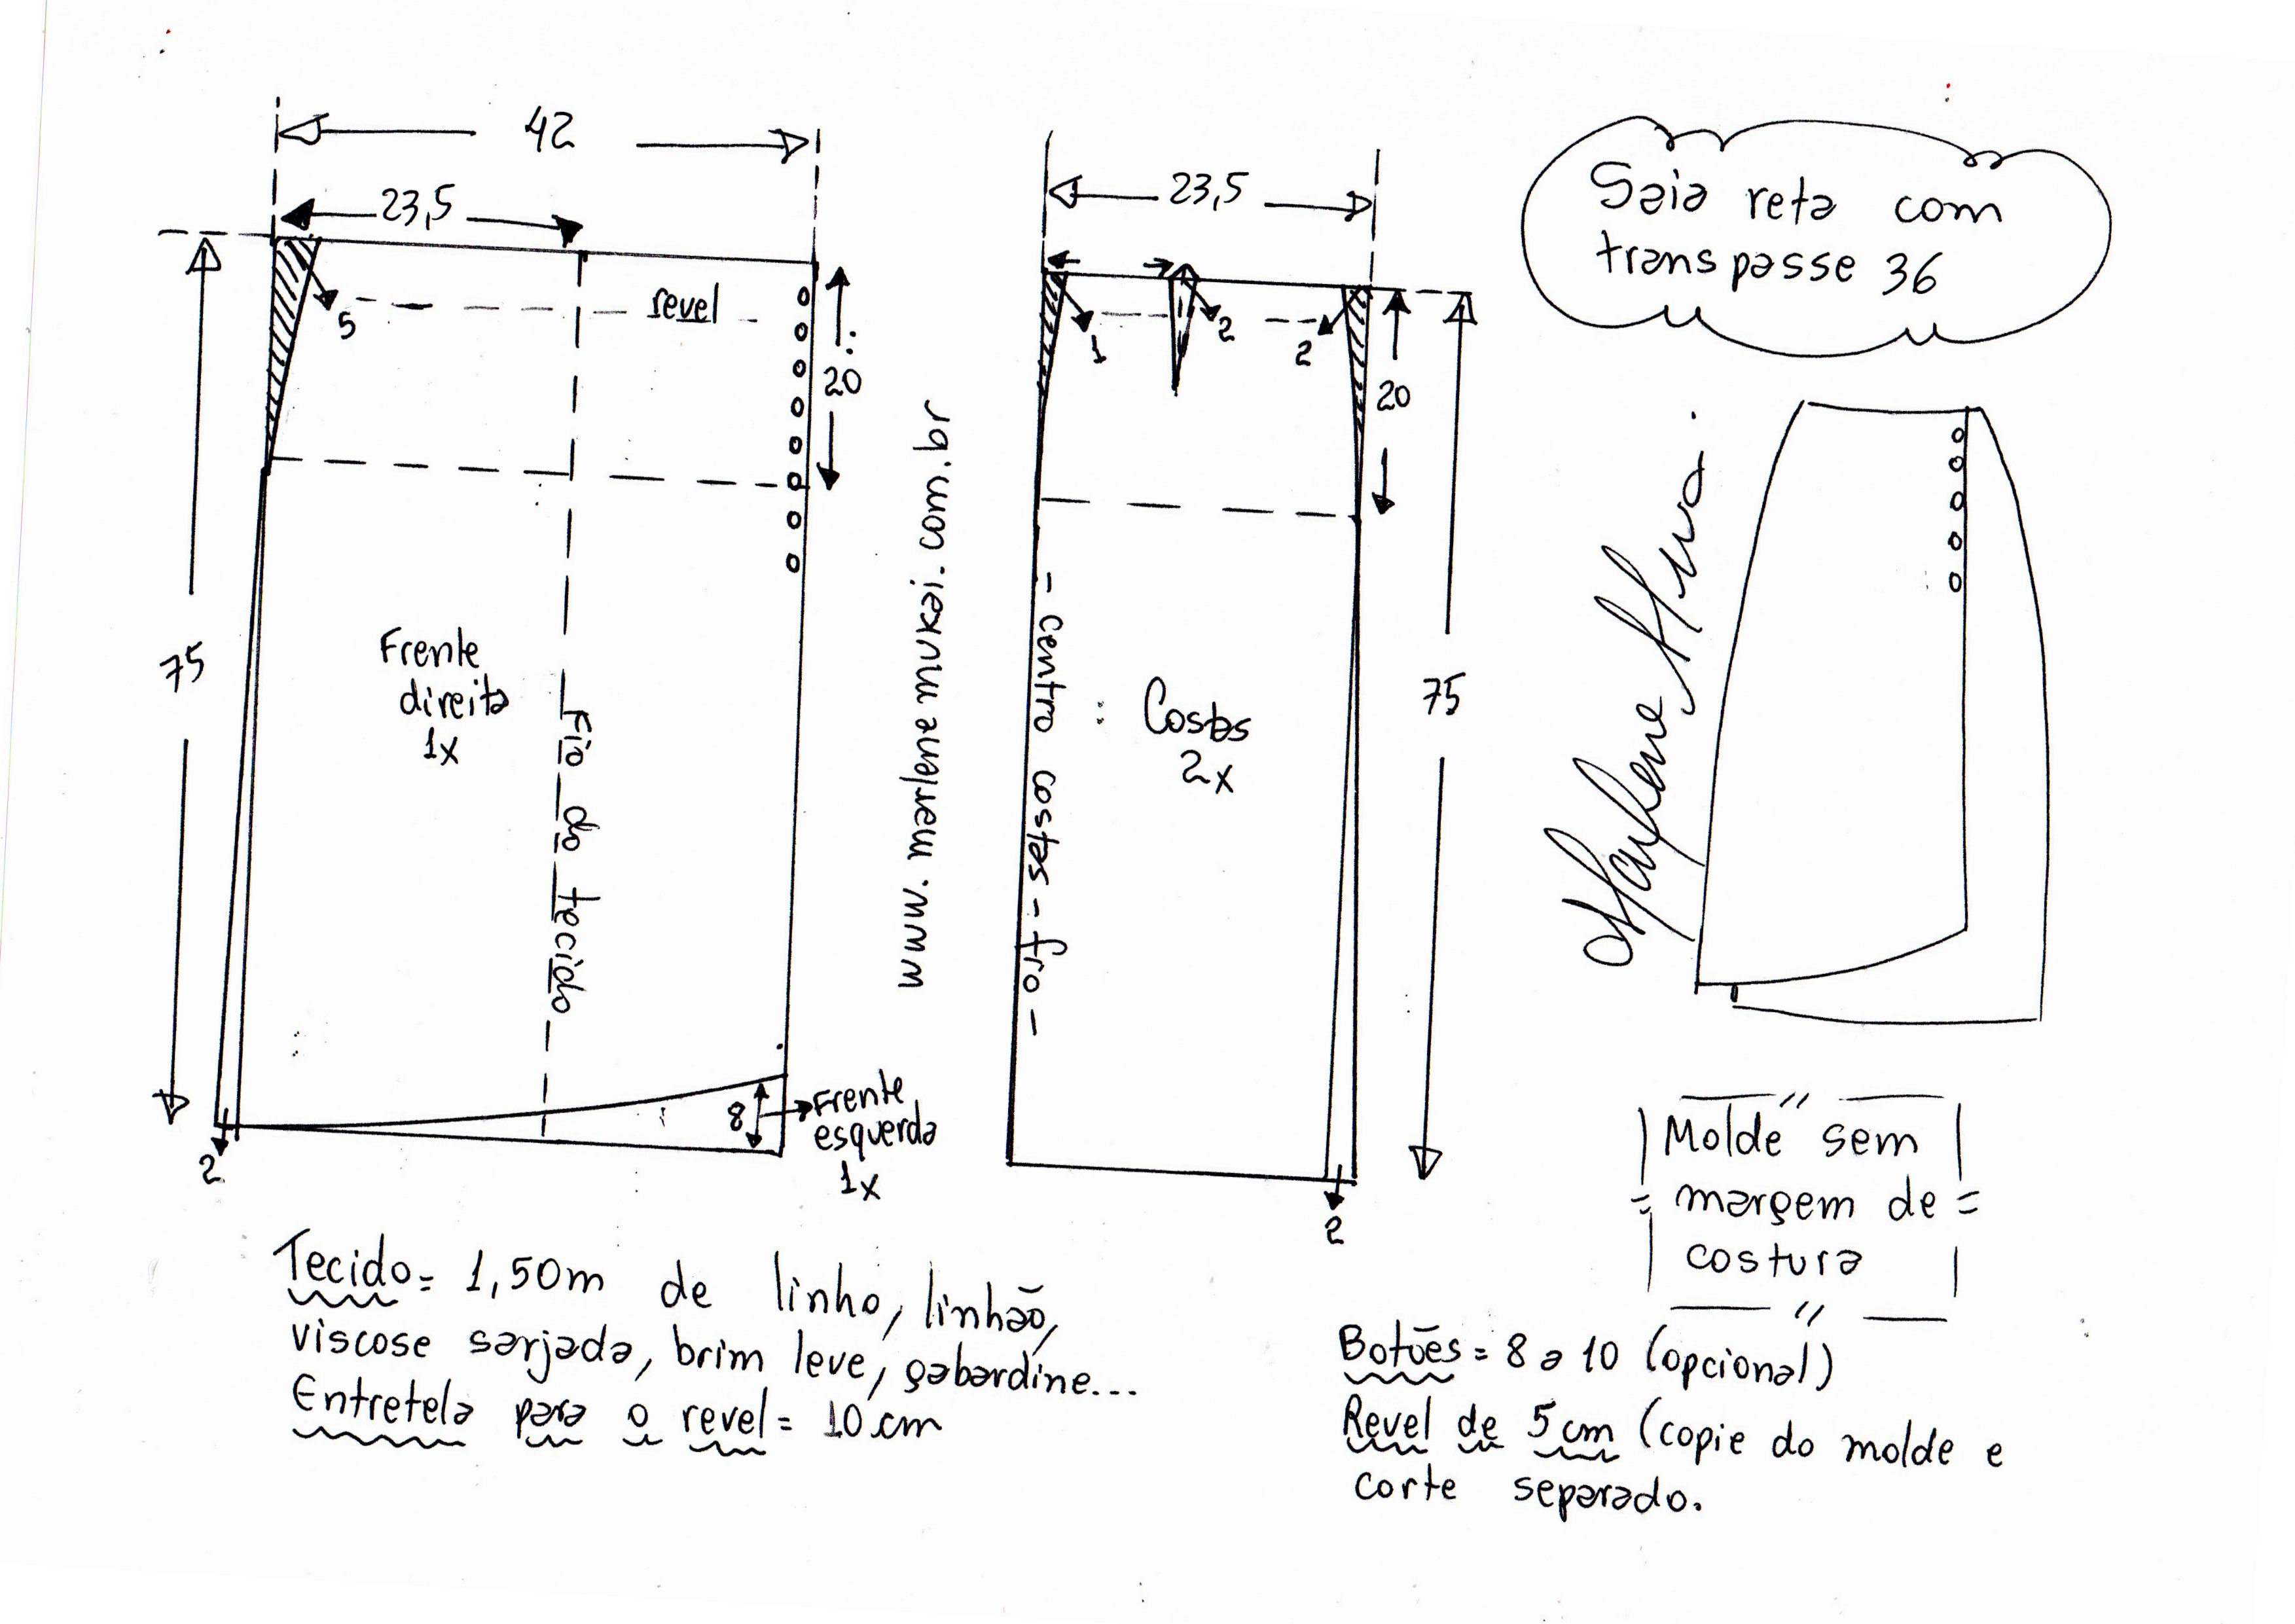 42
23,5
5
revel
20
75
Frente
direita
1x
Fio do tecido
8
Frente
esquerda
1x
2
www.marlene mukai.com.br
23,5
1
2
2
20
75
- centro costas - fio -
Costas
2x
2
Saia reta com
transpasse 36
Marlene Mukai
Molde sem
margem de
costura
Tecido = 1,50m de linho, linhão,
viscose sarjada, brim leve, gabardine...
Entretela para o revel = 10 cm
Botões = 8 a 10 (opcional)
Revel de 5 cm (copie do molde e
corte separado.